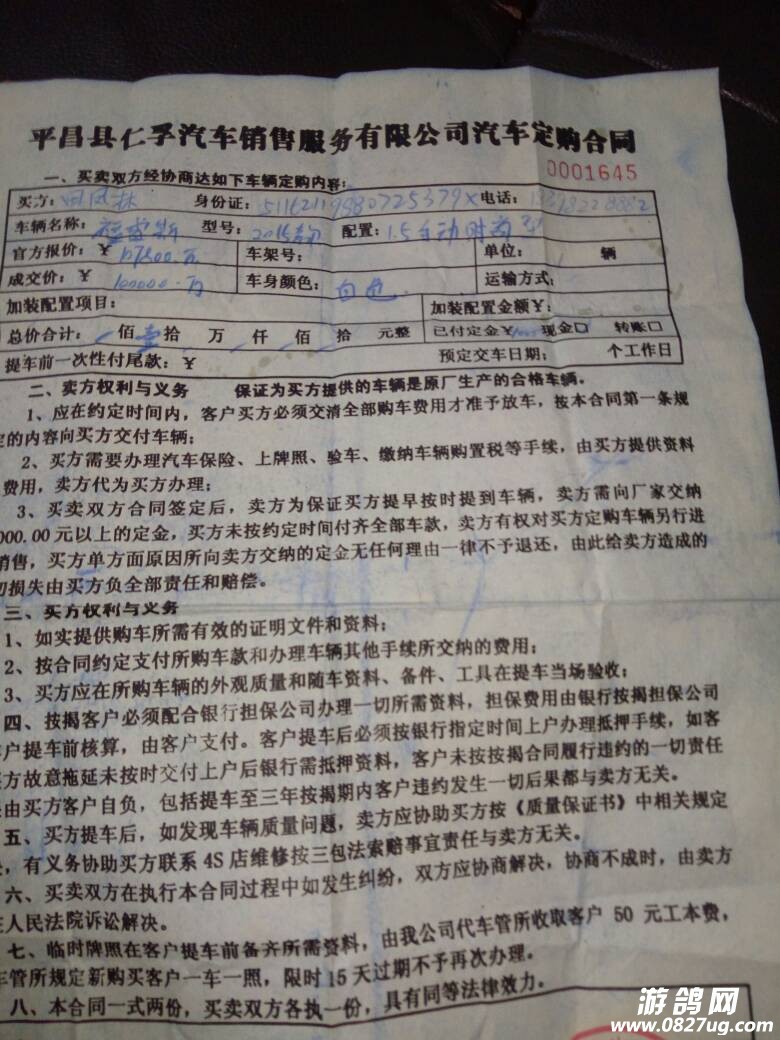 平昌县仁孚汽车销售服务有限公司汽车定购合同
0001645
一、买卖双方经协商达如下车辆定购内容:
买方: 身份证: 电话:
车辆名称: 型号: 配置: 1.5自动时尚
官方报价:¥ 车架号: 单位: 辆
成交价:¥ 100000. 车身颜色: 白色. 运输方式:
加装配置项目: 加装配置金额¥:
总价合计: 佰壹拾 万 仟 佰 拾 元整 已付定金¥ 现金□ 转账□
提车前一次性付尾款:¥ 预定交车日期: 个工作日
二、卖方权利与义务 保证为买方提供的车辆是原厂生产的合格车辆。
1、应在约定时间内,客户买方必须交清全部购车费用才准予放车,按本合同第一条规
定的内容向买方交付车辆;
2、买方需要办理汽车保险、上牌照、验车、缴纳车辆购置税等手续,由买方提供资料
费用,卖方代为买方办理;
3、买卖双方合同签定后,卖方为保证买方提早按时提到车辆,卖方需向厂家交纳
000.00元以上的定金,买方未按约定时间付齐全部车款,卖方有权对买方定购车辆另行进
销售,买方单方面原因所向卖方交纳的定金无任何理由一律不予退还,由此给卖方造成的
切损失由买方负全部责任和赔偿。
三、买方权利与义务
1、如实提供购车所需有效的证明文件和资料;
2、按合同约定支付所购车款和办理车辆其他手续所交纳的费用;
3、买方应在所购车辆的外观质量和随车资料、备件、工具在提车当场验收;
四、按揭客户必须配合银行担保公司办理一切所需资料,担保费用由银行按揭担保公司
客户提车前核算,由客户支付。客户提车后必须按银行指定时间上户办理抵押手续,如客
方故意拖延未按时交付上户后银行需抵押资料,客户未按按揭合同履行违约的一切责任
由买方客户自负,包括提车至三年按揭期内客户违约发生一切后果都与卖方无关。
五、买方提车后,如发现车辆质量问题,卖方应协助买方按《质量保证书》中相关规定
,有义务协助买方联系4S店维修按三包法索赔事宜责任与卖方无关。
六、买卖双方在执行本合同过程中如发生纠纷,双方应协商解决,协商不成时,由卖方
人民法院诉讼解决。
七、临时牌照在客户提车前备齐所需资料,由我公司代车管所收取客户50元工本费,
车管所规定新购买客户一车一照,限时15天过期不予再次办理。
八、本合同一式两份,买卖双方各执一份,具有同等法律效力。
游鸽网
www.0827ug.com